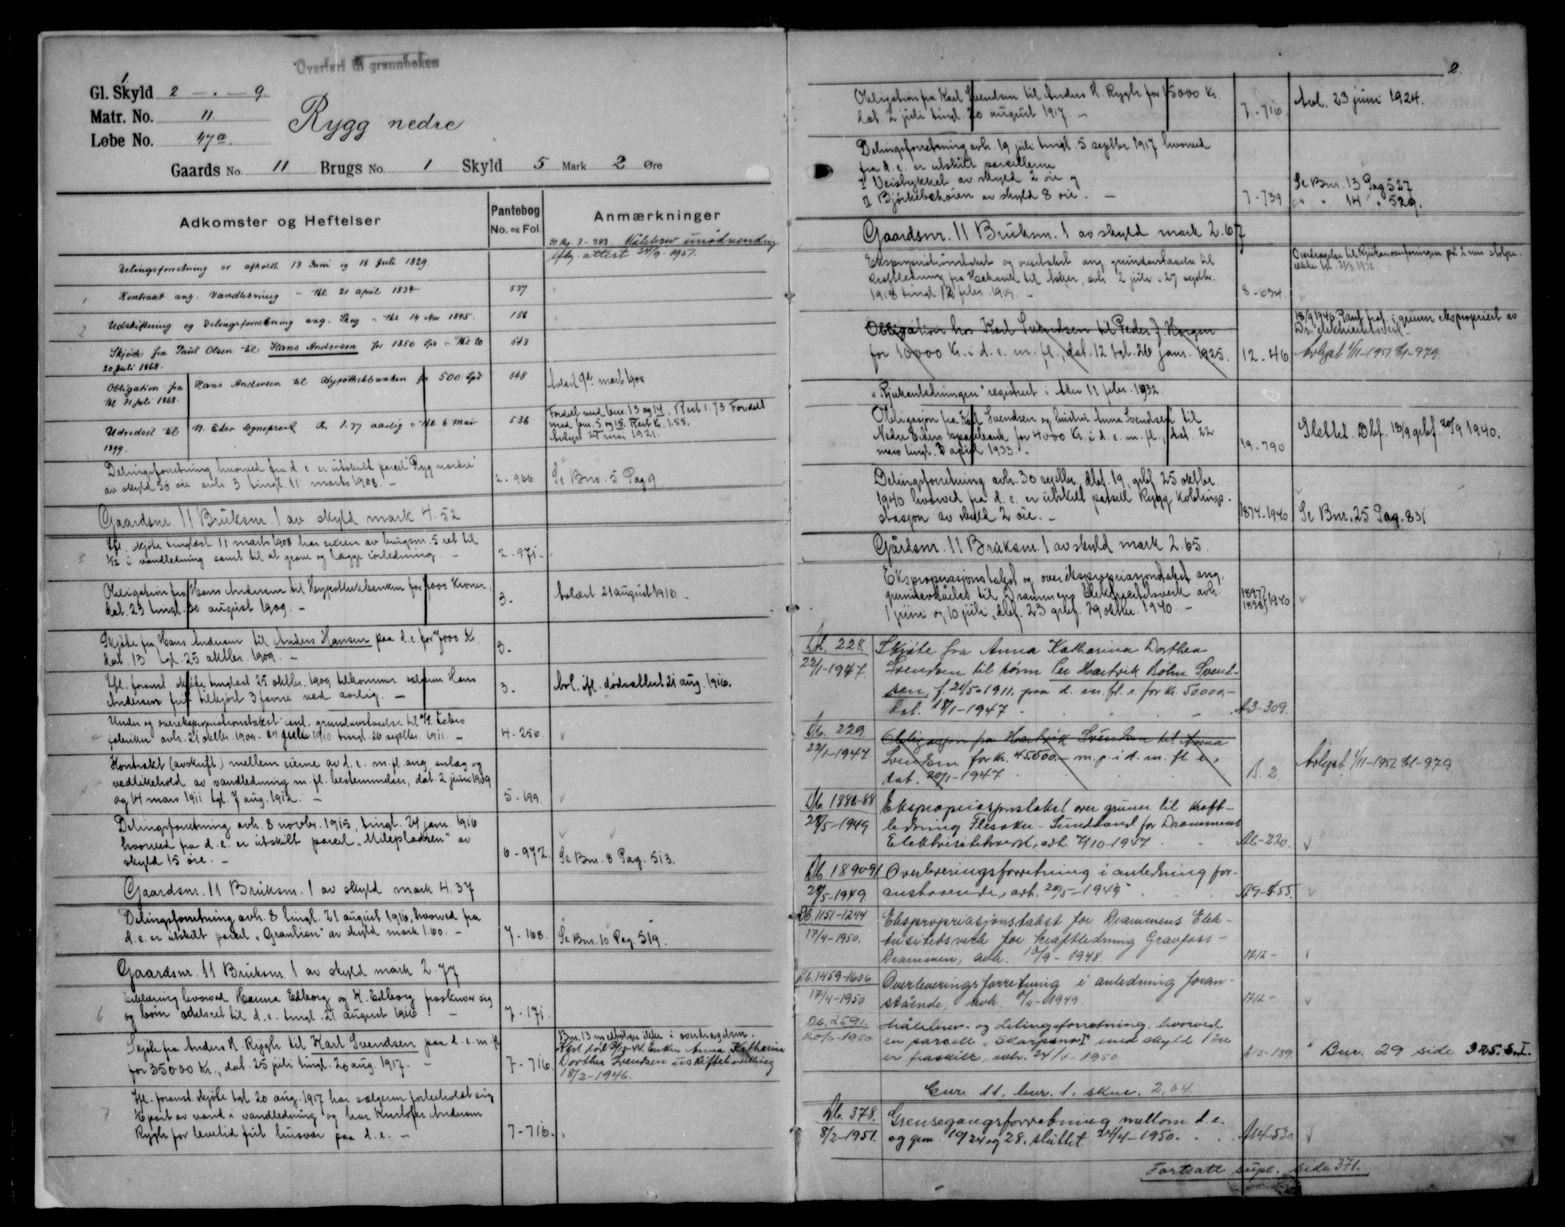 Overført til grønnboken
Gl. Skyld 2 - . - 9
Matr. No. 11
Løbe No. 47a
Rygg nedre
Gaards No. 11 Brugs No. 1 Skyld 5 Mark 2 Øre
Adkomster og Heftelser
Pantebog
No. og Fol.
Anmærkninger
Målebrev unødvendig
iflg. attest 24/9 1951.
Delingsforretning er afholdt 13 Juni og 18 Juli 1829.
1 Kontrakt ang. Vandledning - tgl 21 april 1834 537
2 Udskiftning og Delingsforretning ang. Skog - tgl 14 Nov 1845. 156
Skjøde fra Paul Olsen til Hans Andersen for 1850 Spd - tgl 20 548
20 Juli 1868.
Obligation fra Hans Andersen til Hypothekbanken for 500 Spd 548 Avlæst 9de marts 1908
tgl 21 Juli 1868.
Udvidsel til N. Eker Sogneprest Kr 1.77 aarlig - tgl 6 Mai 536
1899.
Fordelt med bnr. 13 og 14. Rest 1.73 Fordelt
med bnr. 5 og 15. Rest K. 1.55.
Avlyst 21 mai 1921.
Delingsforretning hvorved fra d. e. er utskilt parcel "Rygg nordre"
av skyld 50 øre avh. 3 tingl. 11 marts 1908. - 2-966 Se Bnr. 5 Pag 9
Gaardsnr. 11 Bruksnr. 1 av skyld mark 4.52
3 Ifl. skjøte tinglæst 11 marts 1908 har eieren av bruksnr. 5 ret til
1/2 i vandledning samt til at grave og lægge rørledning. - 2-971.
Obligation fra Hans Andersen til Hypothekbanken for 3000 Kroner,
dat. 23 tingl. 20 august 1909. - 3. Avlæst 21 august 1916 -
Skjøte fra Hans Andersen til Anders Hansen paa d. e. for 7000 Kr.
dat. 13 tgl. 25 oktbr. 1909. - 3.
Ifl. foranst. skjøte tinglæst 25 oktbr. 1909 tilkommer sælgeren Hans
Andersen frit tilkjørt 3 favne ved aarlig. - 3. Avl. ifl. dødsattest 21 aug. 1916.
Under og overekspropriationstakst ang. grundavstaaelse til
fabrikker avh. 21 oktbr. 1909. 24 juli 1910 tingl. 20 septbr. 1911. - 4-250.
Kontrakt (avskrift) mellem eierne av d. e. m. fl. ang. anlæg og
vedlikehold av vandledning m. fl. bestemmelser, dat. 2 juni 1909
og 14 mars 1911 tgl. 7 aug. 1912. - 5-199
Delingsforretning avh. 8 novbr. 1915, tingl. 24 jan. 1916
hvorved fra d. e. er utskilt parcel "Milepladsen" av
skyld 15 øre. - 6-972. Se Bnr. 8 Pag. 513.
Gaardsnr. 11 Bruksnr. 1 av skyld mark 4.37
Delingsforretning avh. 8 tingl. 21 august 1916, hvorved fra
d. e. er utskilt parcel "Granlien" av skyld mark 1.60. - 7-168. Se Bnr. 10 Pag. 519.
Gaardsnr. 11 Bruksnr. 1 av skyld mark 2.77
6 Erklæring hvorved Hanna Edborg og K. Edborg fraskriver sig
og børn odelsret til d. e. tingl. 21 august 1916 - 7-171.
Skjøte fra Anders H. Rygh til Karl Svendsen paa d. e. m. fl.
for 35000 Kr., dat. 25 juli tingl. 20 aug. 1917. - 7-716.
Bnr. 13 medfølger ikke i overdragelsen.
Anna Katharina
Dorthea Svendsen uskiftebevilling
18/2-1946.
7 Ifl. foranst. skjøte tgl. 20 aug. 1917 har sælgeren forbeholdt sig
part av vand i vandledning og har Andersen
Rygh for levetid frit husvær paa d. e. - 7-716.
2.
Obligation fra Karl Svendsen til Anders H. Rygh for 15000 Kr.
dat. 2 juli tingl. 20 august 1917 - 7-716 Avl. 23 juni 1924.
Delingsforretning avh. 19 juli tingl. 5 septbr 1917 hvorved
fra d. e. er utskilt parcellerne
I Veistykket av skyld 2 øre og
II Bjørkebekhøien av skyld 8 øre. - 7-739
Se Bnr. 13 Pag 527
" " 14 " 529.
Gaardsnr. 11 Bruksnr. 1 av skyld mark 2.67
Ekspropriationstakst og overtakst ang. grundavstaaelse til
kraftledning fra Hakavik til Asker, avh. 2 juli - 27 septbr.
1918 tingl. 12 febr. 1919. - 8-634
Obligation hos Karl Svendsen til Peder J. Horgen
for 10000 Kr. i d. e. m. fl., dat. 12 tgl. 26 jan. 1925. 12-46 Avlyst 1/11-1951 -979
"Rjukanledningen" registrert i Aker 11 febr. 1932.
Obligasjon fra Karl Svendsen og hustru Anna Svendsen til
Nedre Eikers sparebank for 4000 Kr. i d. e. m. fl., dat. 22
mars tingl. 3 april 1933. - 19-790 Slettet. Dbf. 19/9 grbf. 20/9 1940.
Delingsforretning avh. 30 septbr., dbf. 19, grbf. 25 oktbr.
1940 hvorved fra d. e. er utskilt parsell Rygg koblings-
stasjon av skyld 2 øre. - 1874-1940 Se Bnr. 25 Pag. 831
Gårdsnr. 11 Bruksnr. 1 av skyld mark 2.65.
Ekspropriasjonstakst og overekspropriasjonstakst ang.
grunnavståelse til Drammens Elektrisitetsverk avh.
1 juni og 10 juli, dbf. 23 grbf. 29 oktbr. 1940. - 1897/1898/1940
Db. 228. Skjøte fra Anna Katharina Dorthea
22/1-1947. Svendsen til sønn Hartvik Svend-
sen, f. 21/5-1911, paa d. e. m. fl. e. for kr. 50000,-
dat. 18/1-1947. A3-309.
Db. 229 Obligasjon fra Hartvik Svendsen til Anna
22/1-1947 Svendsen for kr. 45500.- m. p. i d. e. m. fl. e.,
dat. 20/1-1947. B. 2. Avlyst 1/11-1951 -979
Db. 1886-88 Ekspropriasjonstakst over grunn til kraft-
28/5-1949 ledning Flesaker - Sundland for Drammens
Elektrisitetsverk, avh. 7/10-1947 A6-220.
Db. 1890-91 Overleveringsforretning i anledning for-
28/5-1949 anstaaende, avh. 20/5-1949. A9-555.
Db. 1151-1244 Ekspropriasjonstakst for Drammens Elek-
17/4-1950. trisitetsverk for kraftledning Gravfoss -
Drammen, avh. 10/9-1948. 1212 -
Db. 1459-1606 Overleveringsforretning i anledning foran-
17/4-1950 stående, avh. 1949. 1212 -
Db. 2591. Målebrev- og delingsforretning, hvorved
1950 en parsell "Skarpsno I" med skyld 1 øre
er fraskilt, avh. 24/5-1950 A13-159 Bnr. 29 side 325. S. I.
Gnr. 11, bnr. 1, skm. 2,64
Db. 378. Grensegangsforretning mellom d. e.
8/2-1951. og gnr. 10/24 og 28, sluttet 24/4-1950. A14-530
Fortsatt supl. side 371.